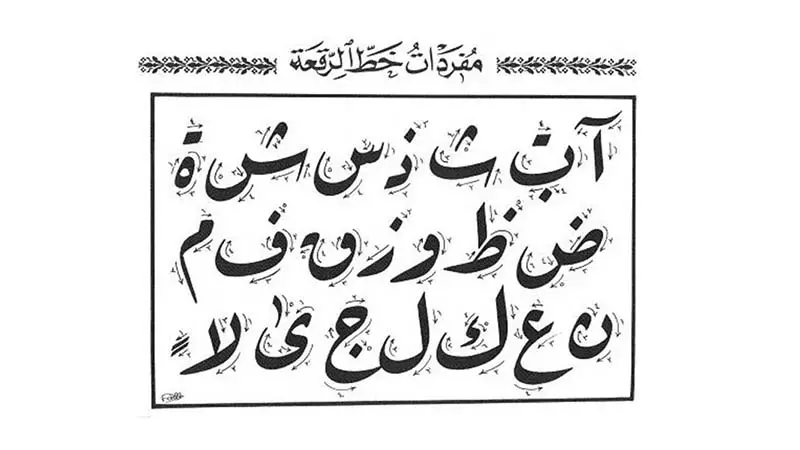 مُفرَدَاتُ خَطِّ الرِّقعَة
آ ب ث ذ س ش ة
ض ظ و ز ق ف م
ن غ ك ل ج ى لا